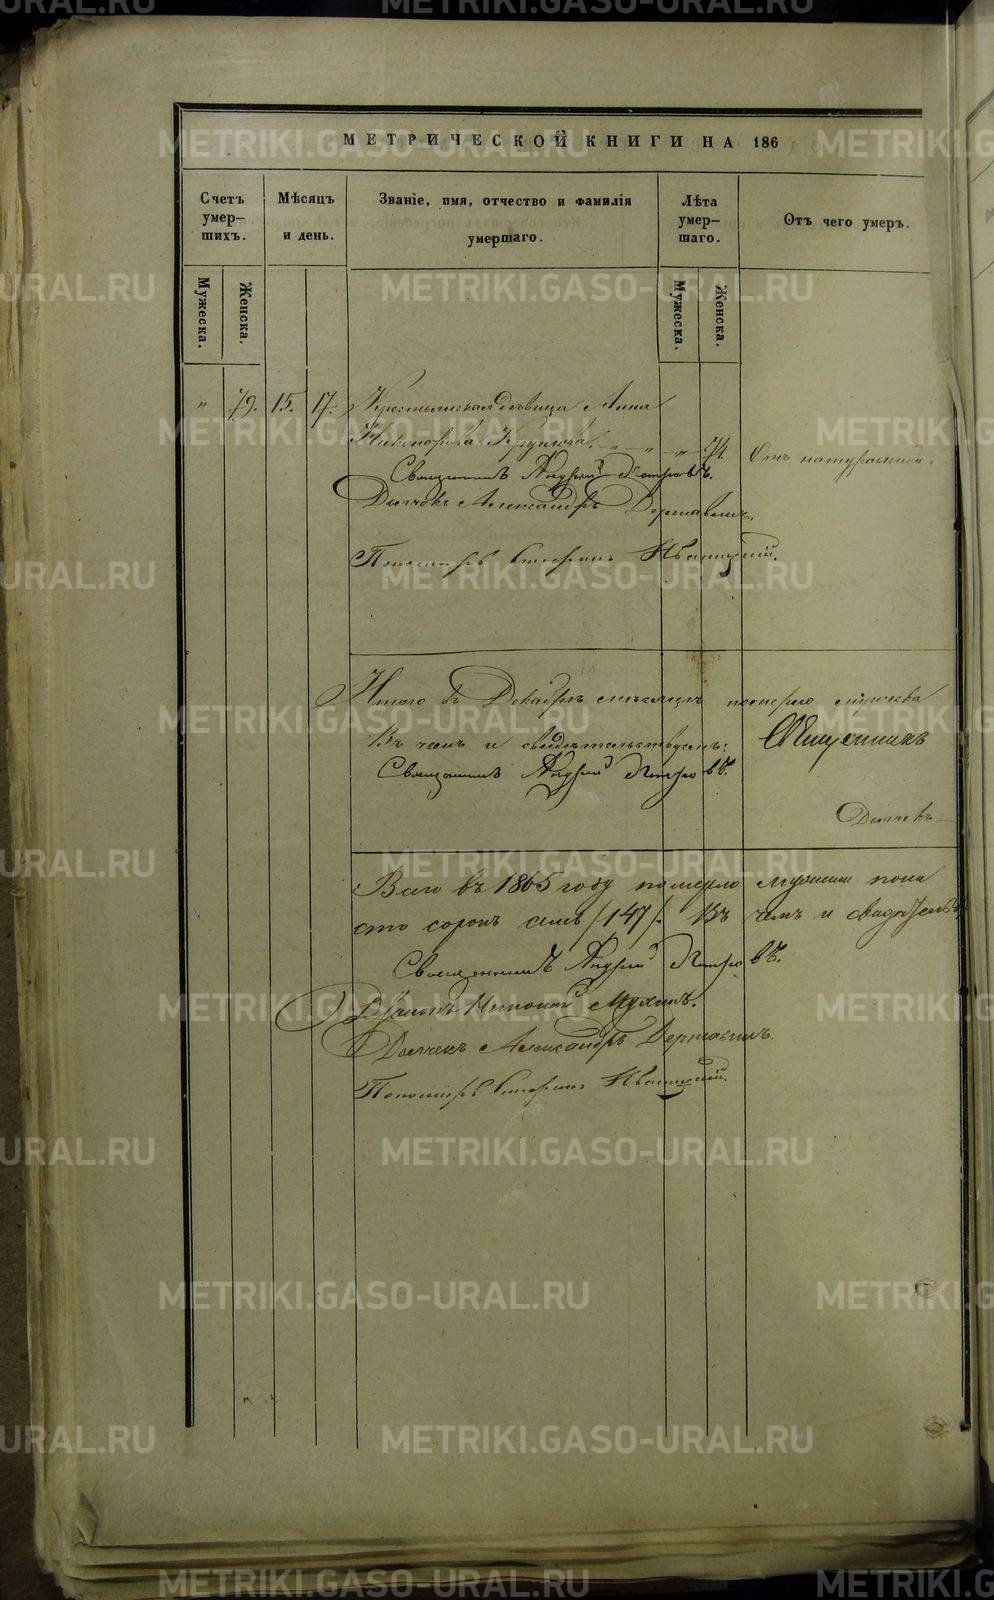 МЕТРИЧЕСКОЙ КНИГИ НА 186
Счетъ умер-шихъ.
Мѣсяцъ и день.
Званіе, имя, отчество и фамилія умершаго.
Лѣта умер-шаго.
Отъ чего умеръ.
Мужеска.
Женска.
Мужеска.
Женска.
" 79. 15. 17. Крестьянская дѣвица Анна
Никифорова " " " 74. Отъ натуральной.
Священникъ Андрей Петровъ.
Дьячекъ Александръ Державинъ.
Пономарь
Итого въ Декабрѣ мѣсяцѣ померло мужеска
Въ чемъ и свидѣтельствуемъ: Священникъ
Священникъ Андрей Петровъ.
Дьячекъ
Всего въ 1865 году померло мужеска пола
сто сорокъ семь /147/. Въ чемъ и свидѣтель
Священникъ Андрей Петровъ.
Дьяконъ Мухинъ.
Дьячекъ Александръ Державинъ.
Пономарь
METRIKI.GASO-URAL.RU